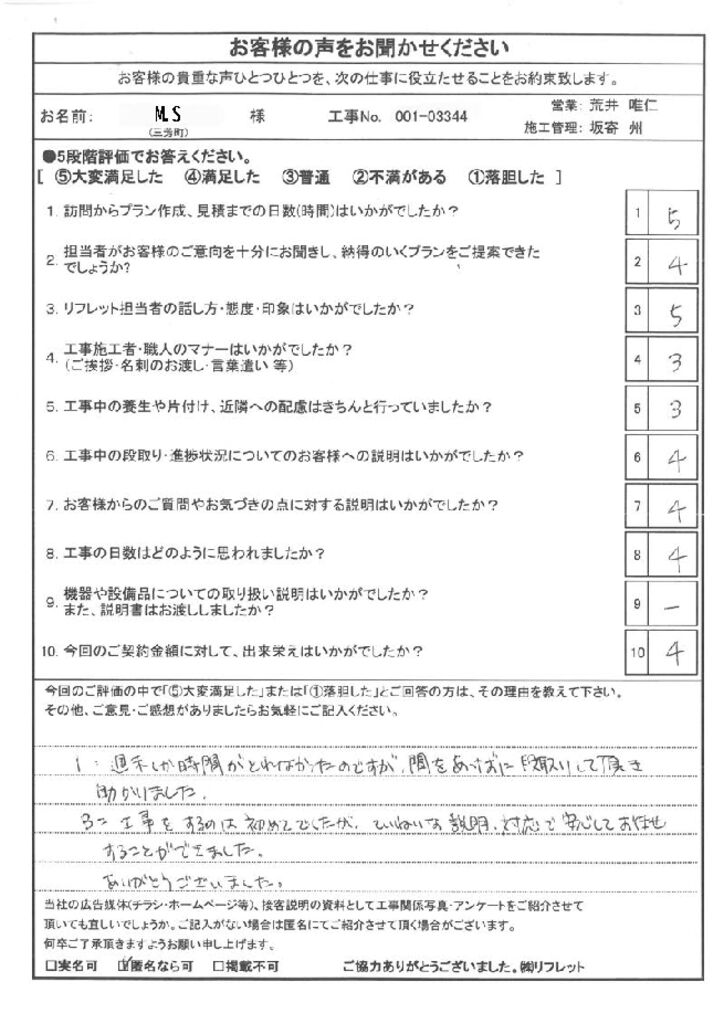 お客様の声をお聞かせください
お客様の貴重な声ひとつひとつを、次の仕事に役立たせることをお約束致します。
お名前: M.S 様 工事No. 001-03344 営業: 荒井 唯仁
(三芳町) 施工管理: 坂寄 州
●5段階評価でお答えください。
[ ⑤大変満足した ④満足した ③普通 ②不満がある ①落胆した ]
1. 訪問からプラン作成、見積までの日数(時間)はいかがでしたか? 1 5
2. 担当者がお客様のご意向を十分にお聞きし、納得のいくプランをご提案できた
でしょうか? 2 4
3. リフレット担当者の話し方・態度・印象はいかがでしたか? 3 5
4. 工事施工者・職人のマナーはいかがでしたか?
(ご挨拶・名刺のお渡し・言葉遣い 等) 4 3
5. 工事中の養生や片付け、近隣への配慮はきちんと行っていましたか? 5 3
6. 工事中の段取り・進捗状況についてのお客様への説明はいかがでしたか? 6 4
7. お客様からのご質問やお気づきの点に対する説明はいかがでしたか? 7 4
8. 工事の日数はどのように思われましたか? 8 4
9. 機器や設備品についての取り扱い説明はいかがでしたか?
また、説明書はお渡ししましたか? 9 ー
10. 今回のご契約金額に対して、出来栄えはいかがでしたか? 10 4
今回のご評価の中で「⑤大変満足した」または「①落胆した」とご回答の方は、その理由を教えて下さい。
その他、ご意見・ご感想がありましたらお気軽にご記入ください。
1: 週末しか時間がとれなかったのですが、間をあけずに段取りして頂き
助かりました。
3: 工事をするのは初めてでしたが、ていねいな説明、対応で安心してお任せ
することができました。
ありがとうございました。
当社の広告媒体(チラシ・ホームページ等)、接客説明の資料として工事関係写真・アンケートをご紹介させて
頂いても宜しいでしょうか。ご記入がない場合は匿名にてご紹介させて頂く場合がございます。
何卒ご了承頂きますようお願い申し上げます。
□実名可 ☑匿名なら可 □掲載不可 ご協力ありがとうございました。㈱リフレット